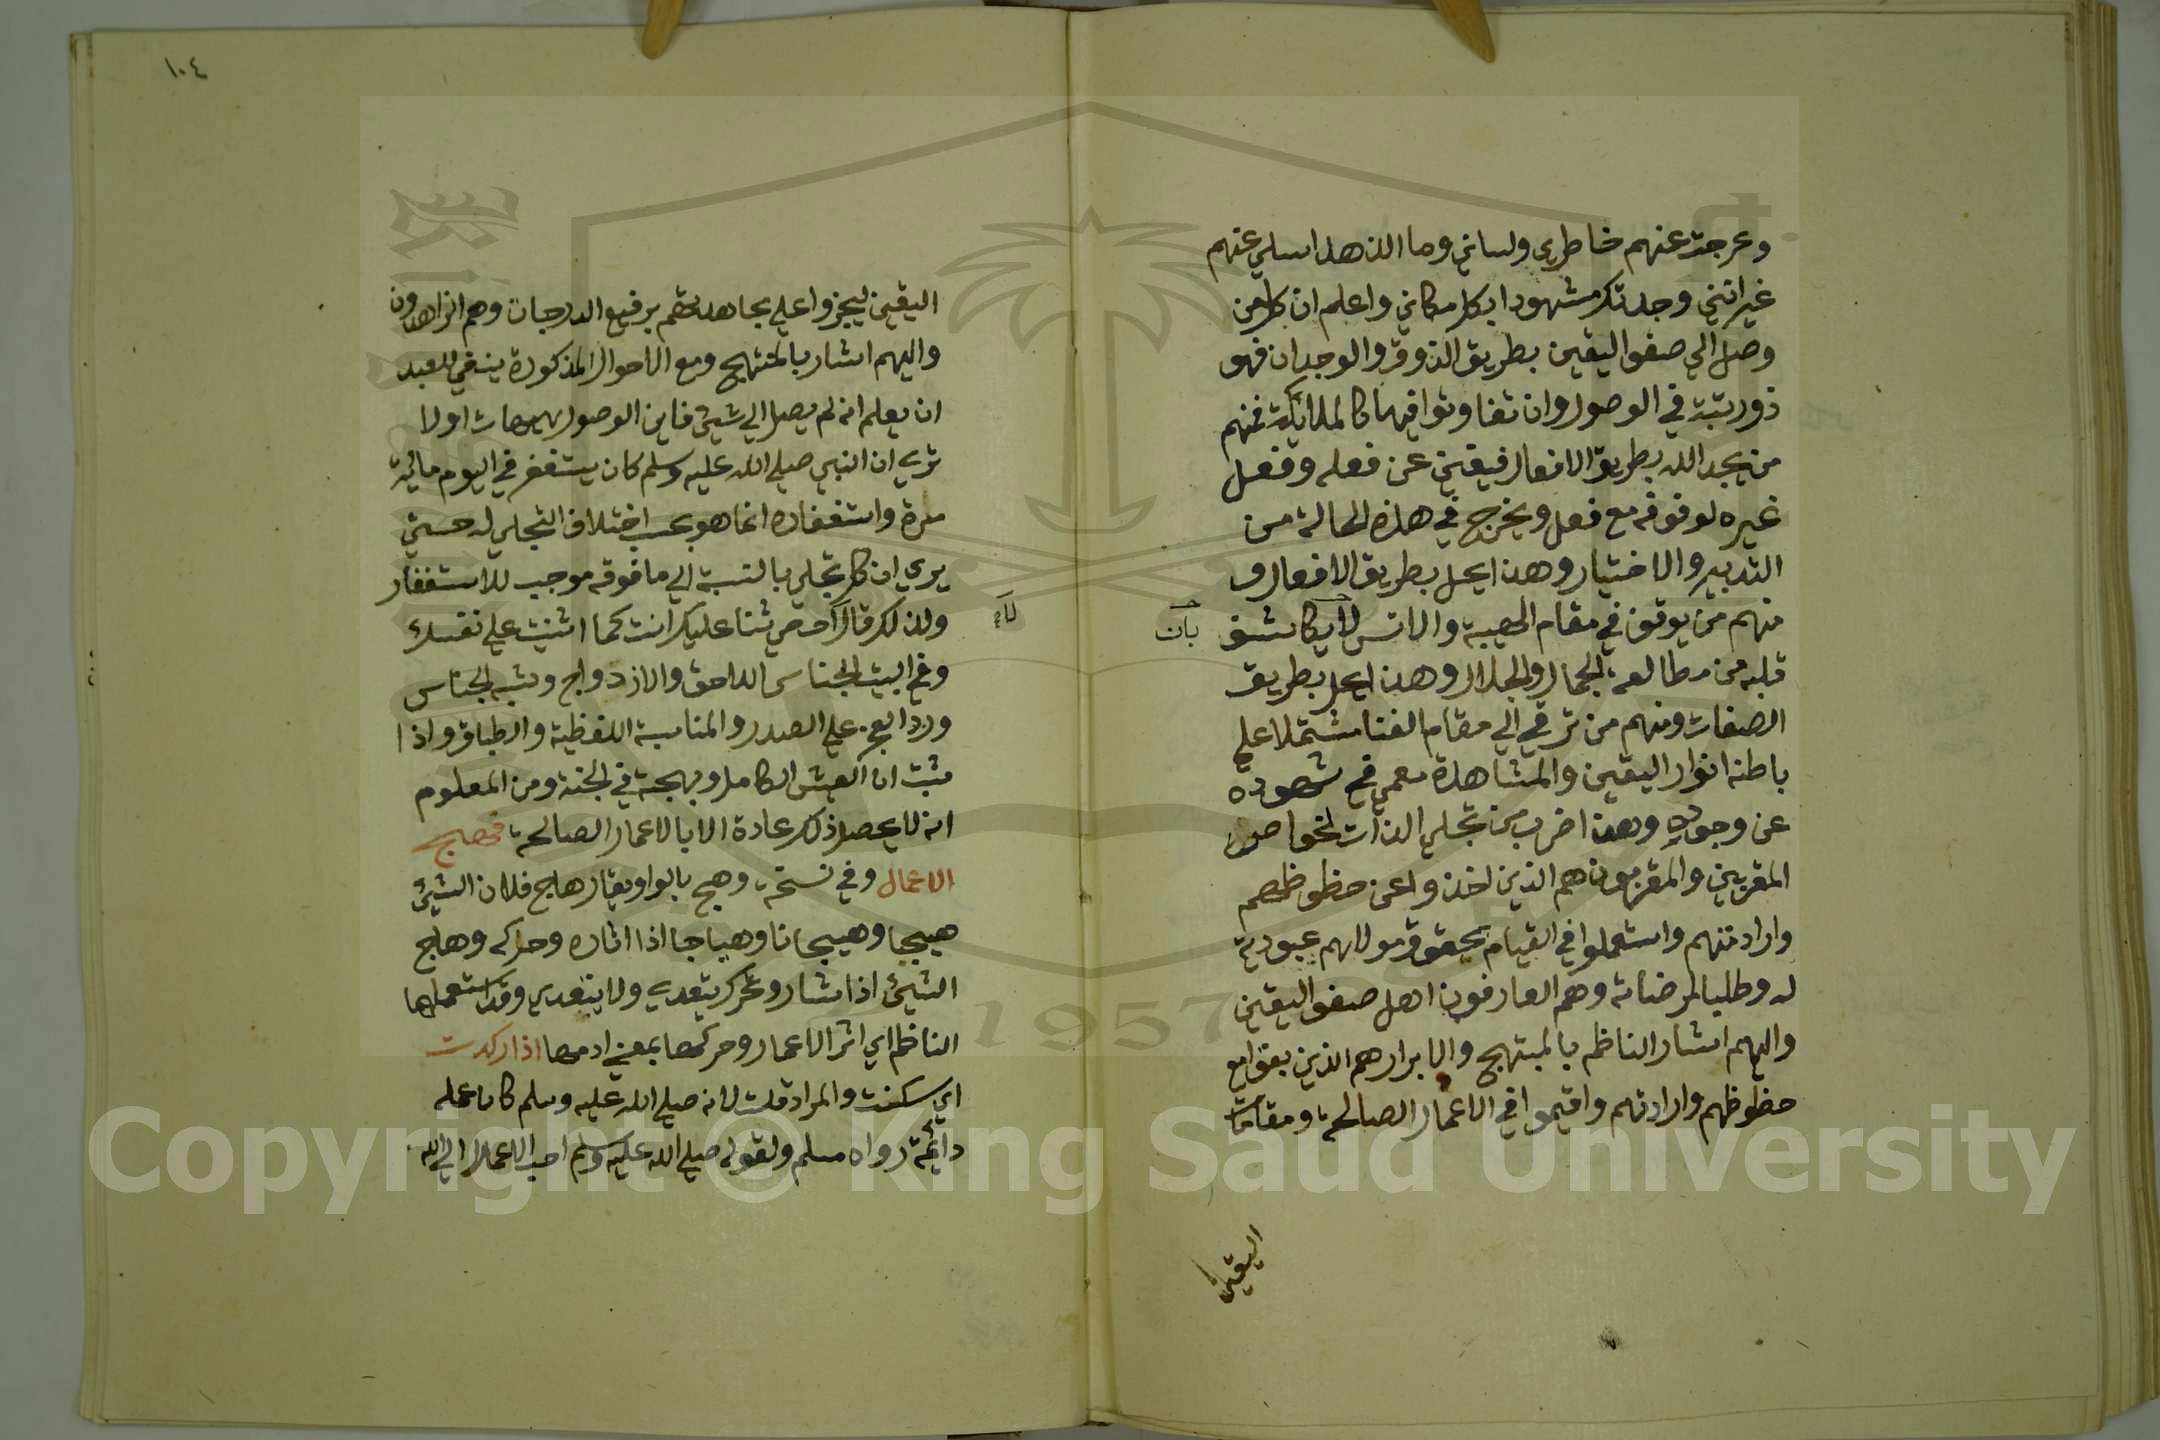 وعرجت عنهم خاطري ولساني وما الذهد اسلي عنهم
غير انني وجدتك مشهودا بكل مكاني واعلم ان كل من
وصل الي صفو اليقين بطريق الذوق والوجدان فهو
ذو رتبة في الوصول وان تفاوتوا فيها كالملايكة فمنهم
من يجد الله بطريق الافعال فيفني عن فعله وفعل
غيره لوقوفه مع فعل ويخرج في هذه الحالة من
التدبير والاختيار وهذا يحل بطريق الافعال و
منهم من يوقف في مقام الهيبة والانس لا يكاشف
بان
قلبه من مطالعة الجمال والجلال وهذا يحل بطريق
الصفات ومنهم من ترقي الي مقام الفنا مشتملا علي
باطنه انوار اليقين والمشاهدة معمي في شهوده
عن وجوده وهذا ضرب من تجلي الذات لخواص
المقربين والمقربون هم الذين اخذوا عن حظوظهم
وارادتهم واستعملوا في القيام بحقوق مولاهم عبودية
له وطلبا لمرضاته وهم العارفون اهل صفو اليقين
واليهم اشار الناظم بالمبتهج والابرار هم الذين بقوا مع
حظوظهم وارادتهم واقيموا في الاعمال الصالحة ومقامات
اليقين
١٠٤
اليقين ليجزوا علي مجاهدتهم برفيع الدرجات وهم الزاهدون
واليهم اشار بالمنتهج ومع الاحوال المذكورة ينبغي للعبد
ان يعلم انه لم يصل الي شيئ فاين الوصول هيهات اولا
تري ان النبي صلي الله عليه وسلم كان يستغفر في اليوم مائة
مرة واستغفاره انما هو بحسب اختلاف التجلي له حتي
يري ان كل تجلي بالنسبة الي ما فوقه موجب للاستغفار
ولذلك قال لا احصي ثنا عليك انت كما اثنيت علي نفسك
وفي البيت الجناس اللاحق والازدواج وشبه الجناس
ورد العجز علي الصدر والمناسبة اللفظية والطباق واذا
ثبت ان العيش الكامل وبهجته في الجنة ومن المعلوم
انه لا يحصل ذلك عادة الا بالاعمال الصالحة فهج
الاعمال وفي نسخة وهج بالواو يقال هاج فلان الشيئ
هيجا وهيجانا وهياجا اذا اثاره وحركه وهاج
الشيئ اذا سار وتحرك يتعدي ولا يتعدي وقد استعملها
الناظم اي اثر الاعمال وحركها بمعني ادمها اذا ركدت
اي سكنت والمراد قلت لانه صلي الله عليه وسلم كان عمله
دائمة رواه مسلم ولقوله صلي الله عليه وسلم احب الاعمال الي الله
Copyright © King Saud University
1957